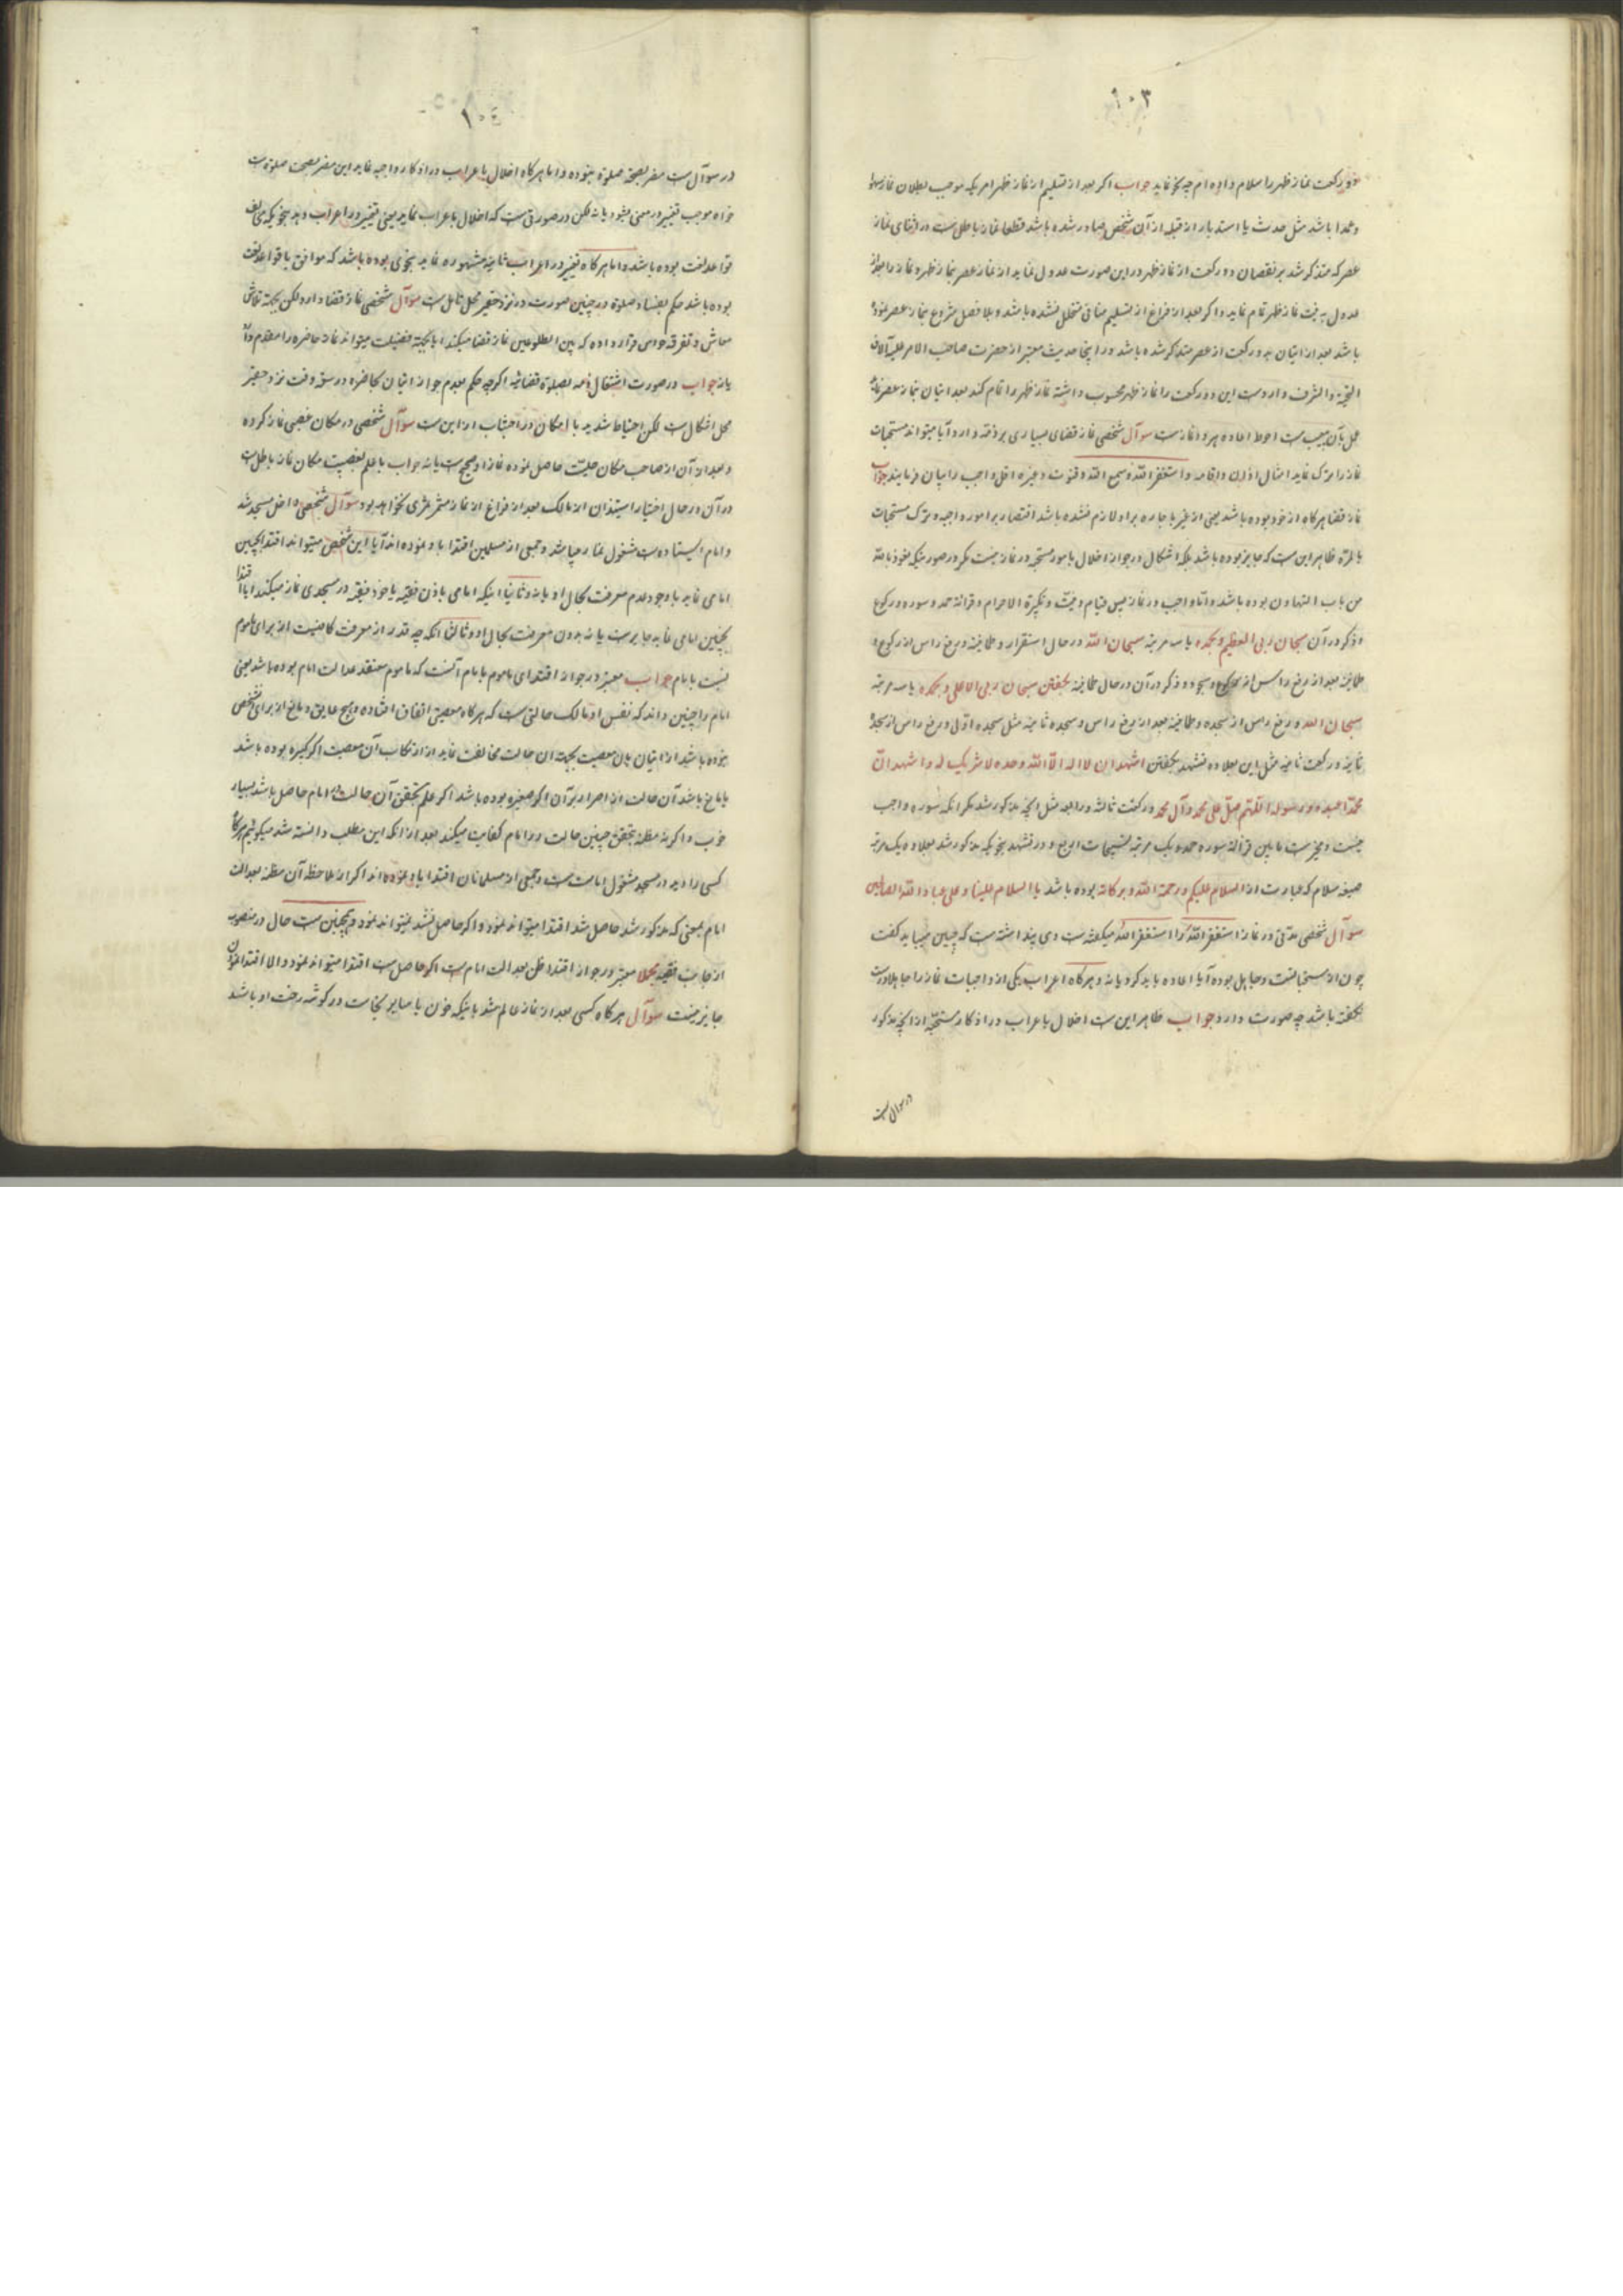 ١٠٣
دو رکعت نماز ظهر را سلام داده ام چه نحو نماید جواب اگر بعد از تسلیم از نماز ظهر امریکه موجب بطلان نماز سهوا
و عمدا باشد مثل حدث یا استدبار از قبله از آن شخص صادر شده باشد قطعا نماز باطل است در اثنای نماز
عصر که متذکر شد بر نقصان دو رکعت از نماز ظهر در این صورت عدول نماید از نماز عصر بنماز ظهر و نماز را بعد از
عدول به نیت نماز ظهر تمام نماید و اگر بعد از فراغ از تسلیم منافی متخلل نشده باشد و بلا فصل شروع بنماز عصر نموده
باشد بعد از اتیان به دو رکعت از عصر متذکر شده باشد در اینجا حدیث معتبر از حضرت صاحب الامر علیه آلاف
التحیة و الشرف وارد است این دو رکعت را نماز ظهر محسوب داشته نماز ظهر را تمام کند بعد اتیان بنماز عصر نماید
عمل بآن عیب است احوط اعاده هر دو نماز است سوآل شخصی نماز قضای بسیاری بر ذمه دارد آیا میتواند مستحبات
نماز را ترک نماید امثال اذان و اقامه و استغفر الله و سمع الله و قنوت و غیره اقل واجب را بیان فرمایند جواب
نماز قضا هرگاه از خود بوده باشد یعنی از غیر باجاره بر او لازم نشده باشد اقتصار بر امور واجبه و ترک مستحبات
بالمره ظاهر این است که جایز بوده باشد بلکه اشکال در جواز اخلال بامور مستحبه در نماز نیست مگر در صورتیکه نعوذ بالله
من باب التهاون بوده باشد و اما واجب در نماز پس قیام و نیت و تکبیرة الاحرام و قرائة حمد و سوره و رکوع
و ذکر در آن سبحان ربی العظیم و بحمده یا سه مرتبه سبحان الله در حال استقرار و طمانینه و رفع راس از رکوع و
طمانینه بعد از رفع راس از رکوع و سجود و ذکر در آن در حال طمانینه بگفتن سبحان ربی الاعلی و بحمده یا سه مرتبه
سبحان الله و رفع راس از سجده و طمانینه بعد از رفع راس و سجده ثانیه مثل سجده اولی و رفع راس از سجدهٔ
ثانیه و رکعت ثانیه مثل این بعلاوه تشهد بگفتن اشهد ان لا اله الا الله وحده لا شریک له و اشهد ان
محمدا عبده و رسوله اللهم صل علی محمد و آل محمد و رکعت ثالثه و رابعه مثل آنچه مذکور شد مگر آنکه سوره واجب
نیست و مخیر است ما بین قرائة سوره حمد و یک مرتبه تسبیحات اربع و در تشهد بنحویکه مذکور شد بعلاوه یک مرتبه
صیغه سلام که عبارت از السلام علیکم و رحمة الله و برکاته بوده باشد یا السلام علینا و علی عباد الله الصالحین
سوآل شخصی مدتی در نماز استغفر الله را استغفر الله میگفته است و می پنداشته است که چنین میباید گفت
چون از مستحبا است و جاهل بوده آیا اعاده باید کرد یا نه و هرگاه اعراب یکی از واجبات نماز را جاهلا درست
نگفته باشد چه صورت دارد جواب ظاهر این ست اخلال باعراب در اذکار مستحبه از آنچه مذکور
در سوال است
١٠٤
در سوآل ست مضر بصحة صلوة نبوده و اما هرگاه اخلال باعراب در اذکار واجبه نماید این مضر بصحت صلوة ست
خواه موجب تغییر در معنی بشود یا نه لکن در صورتی ست که اخلال باعراب نماید یعنی تغییر در اعراب دهد بنحویکه مخالف
قواعد لغت بوده باشد و اما هرگاه تغییر در اعراب ثانیه مشهوره نماید بنحوی بوده باشد که موافق با قواعد لغت
بوده باشد حکم بفساد صلوة در چنین صورت در نزد حقیر محل تامل ست سوآل شخصی نماز قضا دارد لکن بجهة تلاش
معاش و تفرقه حواس قرار داده که بین الطلوعین نماز قضا میکند ایا بجهة فضیلت میتواند نماز حاضره را مقدم دارد
یا نه جواب در صورت اشتغال ذمه بصلوة قضائیه اگرچه حکم بعدم جواز اتیان بحاضره در سعه وقت نزد حقیر
محل اشکال ست لکن احتیاط شدید با امکان در اجتناب از این ست سوآل شخصی در مکان غصبی نماز کرده
و بعد از آن از صاحب مکان حلیت حاصل نموده نماز او صحیح ست یا نه جواب با علم بغصبیت مکان نماز باطل ست
در آن در حال اختیار استیذان از مالک بعد از فراغ از نماز مثمر ثمری نخواهد بود سوآل شخصی داخل مسجد شد
و امام ایستاده ست مشغول نماز میباشد و جمعی از مسلمین اقتدا باو نموده اند آیا این شخص میتواند اقتدا بچنین
امامی نماید با وجود عدم معرفت بحال او یا نه و ثانیا اینکه امامی باذن فقیه یا خود فقیه در مسجدی نماز میکند ایا اقتدا
بچنین امامی نماید جایز ست یا نه بدون معرفت بحال او و ثالثا آنکه چه قدر از معرفت کافیست از برای ماموم
نسبت بامام جواب معتبر در جواز اقتدای ماموم بامام آنست که ماموم معتقد عدالت امام بوده باشد یعنی
امام را چنین داند که نفس او مالک حالتی ست که هرگاه معصیتی اتفاق افتاده و هیچ عایق و مانع از برای شخص
نبوده باشد از اتیان بان معصیت بجهة ان حالت مخالفت نماید از ارتکاب آن معصیت اگر کبیره بوده باشد
یا مانع باشد آن حالت از اصرار بر آن اگر صغیره بوده باشد اگر علم بتحقق آن حالت در امام حاصل باشد بسیار
خوب و اگر نه مظنه بتحقق چنین حالت در امام کفایت میکند بعد از آنکه این مطلب دانسته شد میگوئیم هرگاه
کسی را دید در مسجد مشغول امامت ست و جمعی از مسلمانان اقتدا باو نموده اند اگر از ملاحظه آن مظنه بعدالت
امام بمعنی که مذکور شد حاصل شد اقتدا میتواند نمود و اگر حاصل نشد نمیتواند نمود و همچنین ست حال در منصوب
از جانب فقیه مجملا معتبر در جواز اقتدا ظن بعدالت امام ست اگر حاصل ست اقتدا میتواند نمود و الا اقتدا نمودن
جایز نیست سوآل هرگاه کسی بعد از نماز عالم شد باینکه خون یا سایر نجاست در گوشه رخت او باشد